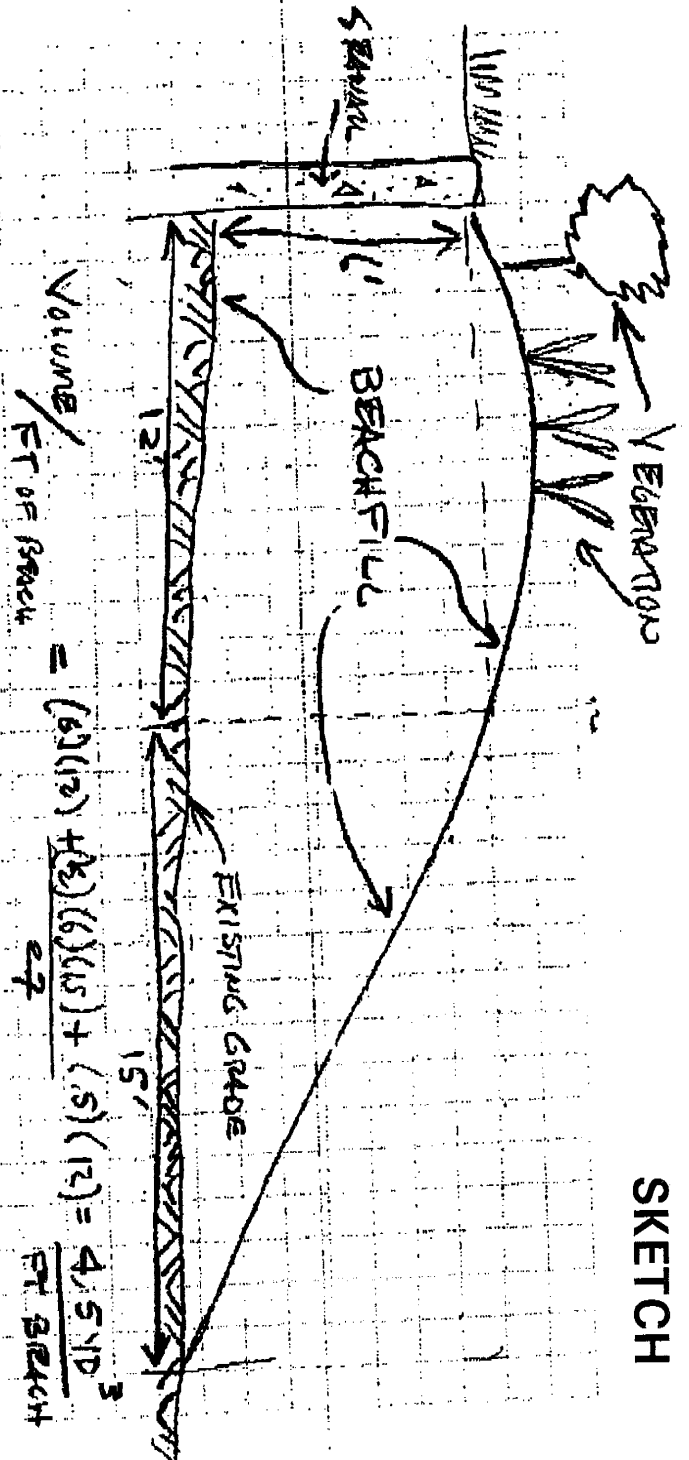 SKETCH
VEGETATION
SEAWALL
6'
BEACH FILL
12'
EXISTING GRADE
15'
VOLUME/FT OF BEACH = (6)(12) + (½)(6)(15) + (.5)(12) = 4.5 YD³
27
FT BEACH